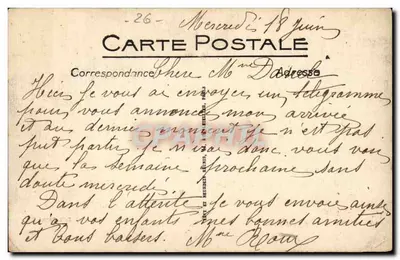 -26-
Mercredi 18 Juin
CARTE POSTALE
Correspondance
Adresse
Chere Mme
Hier je vous ai envoyer un télégramme
pour vous annoncer mon arrivée
et au dernier n'est pas
put partir je n'irai donc vous voir
que la semaine prochaine sans
doute mercredi
Dans l'attente je vous envoie ainsi
qu'a vos enfants mes bonnes amitiés
et bons baisers. Mme Roux